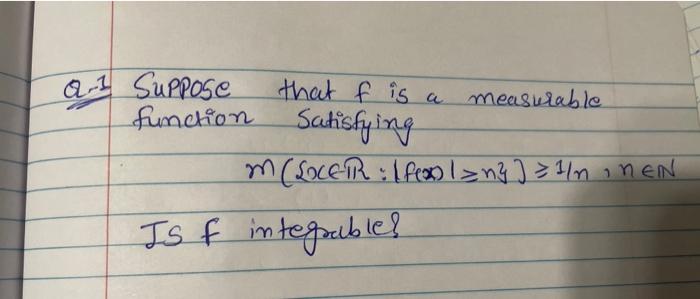 Q-1 Suppose that f is a measurable
function Satisfying
m({x∈ℝ : |f(x)| ≥ n}) ≥ 1/n , n∈ℕ
Is f integrable?